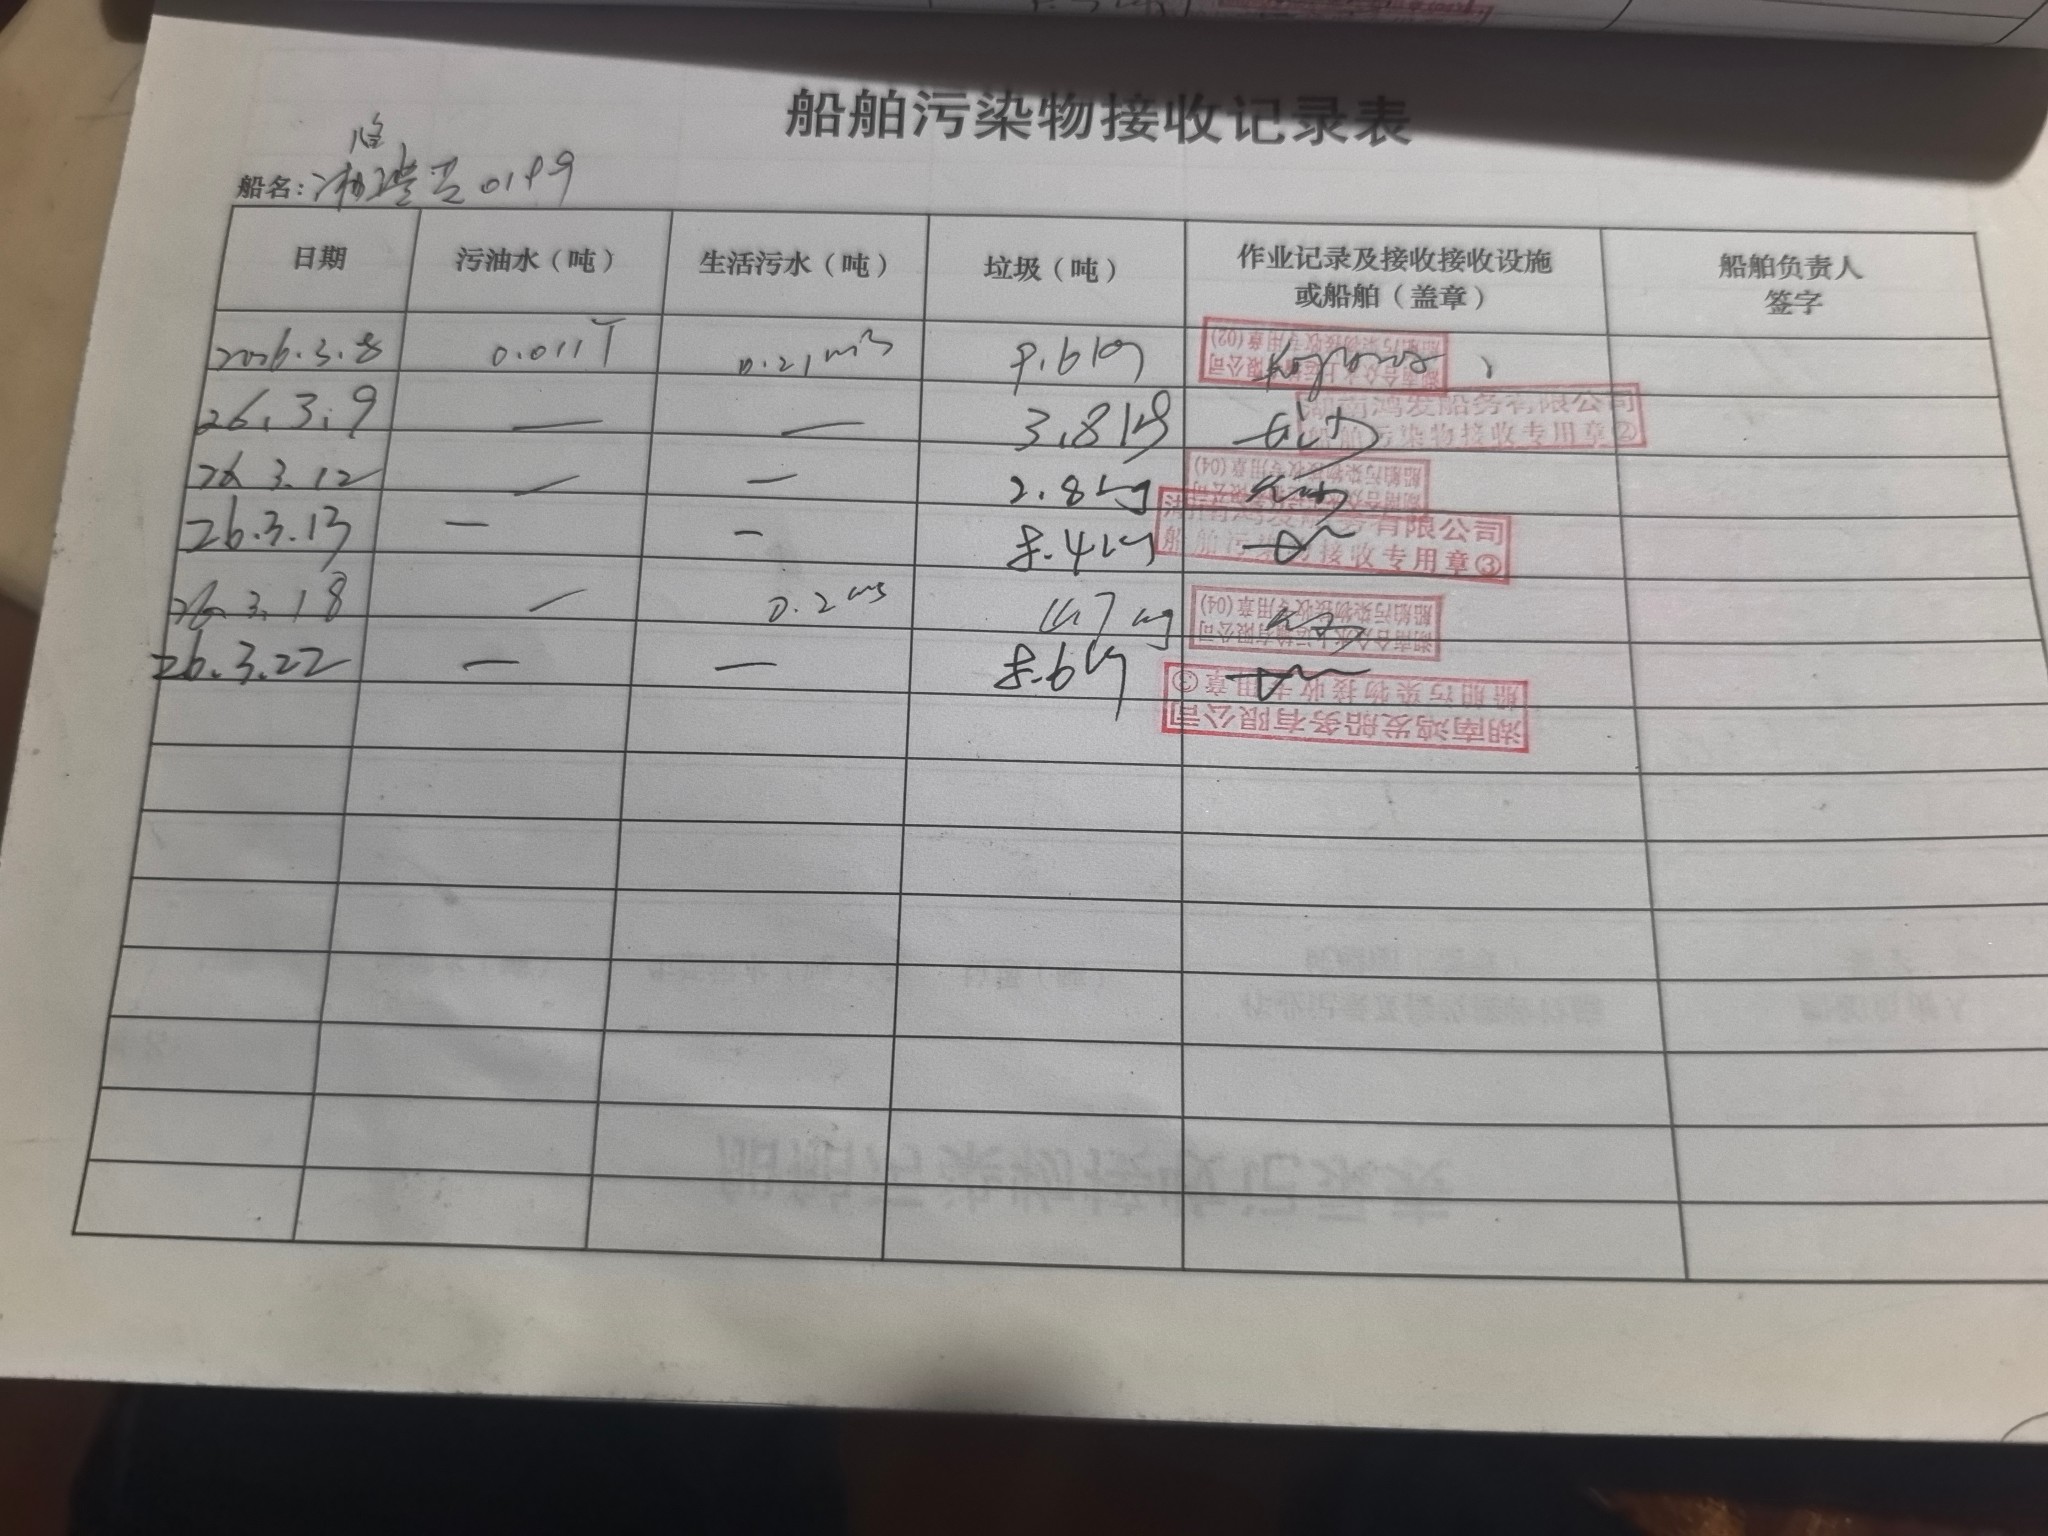 船舶污染物接收记录表
船名: 湘 0149
日期 污油水（吨） 生活污水（吨） 垃圾（吨） 作业记录及接收接收设施 船舶负责人
或船舶（盖章） 签字
2026.3.8 0.011T 0.21m3 9.6kg
湖南合众水上运输有限公司
船舶污染物接收专用章(02)
26.3.9 — — 3.8kg
湖南鸿发船务有限公司
船舶污染物接收专用章②
26.3.12 — — 2.8kg
船舶污染物接收专用章(04)
26.3.13 — — 8.4kg
湖南鸿发船务有限公司
船舶污染物接收专用章③
26.3.18 — 0.2m3
湖南合众水上运输有限公司
船舶污染物接收专用章(04)
26.3.22 — — 8.6kg
湖南鸿发船务有限公司
船舶污染物接收专用章③